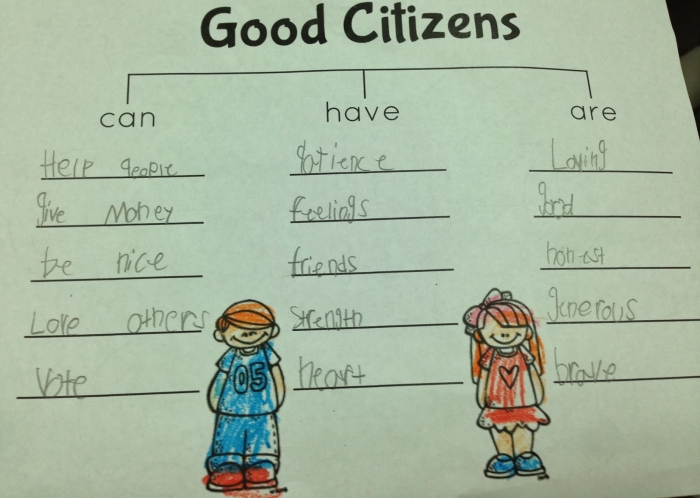 Good Citizens
can
Help people
give Money
be nice
Love others
Vote
have
patience
feelings
friends
strength
heart
are
Loving
good
honest
generous
brave
05